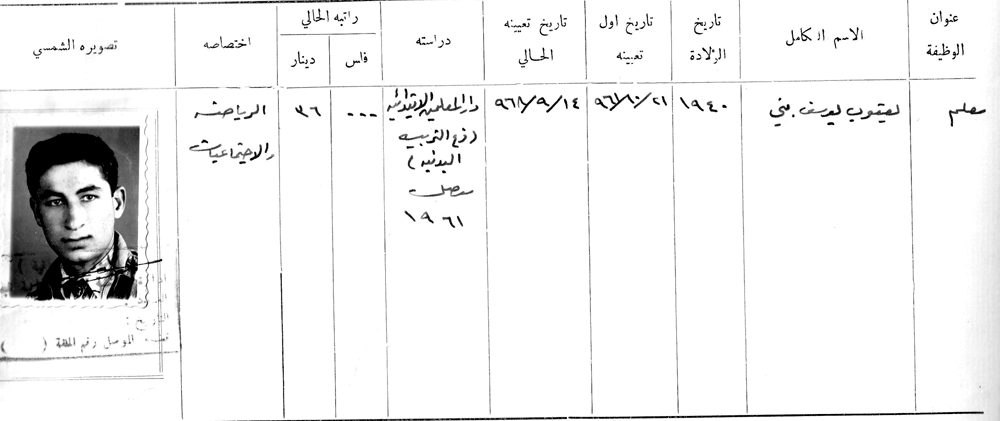 عنوان الوظيفة
الاسم الكامل
تاريخ الولادة
تاريخ اول تعيينه
تاريخ تعيينه الحالي
دراسته
راتبه الحالي
فلس
دينار
اختصاصه
تصويره الشمسي
معلم
يعقوب يوسف ببني
١٩٤٠
٩٦١/١٠/٢١
٩٦٨/٩/١٤
دار المعلمين الابتدائية
(فرع التربية
البدنية)
موصل
١٩٦١
...
٣٦
الرياضة
والاجتماعيات
التاريخ :
الموصل رقم الحلقة ( )